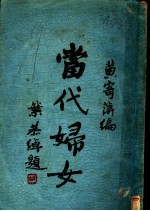 黃寄萍編
當代婦女
葉恭綽題